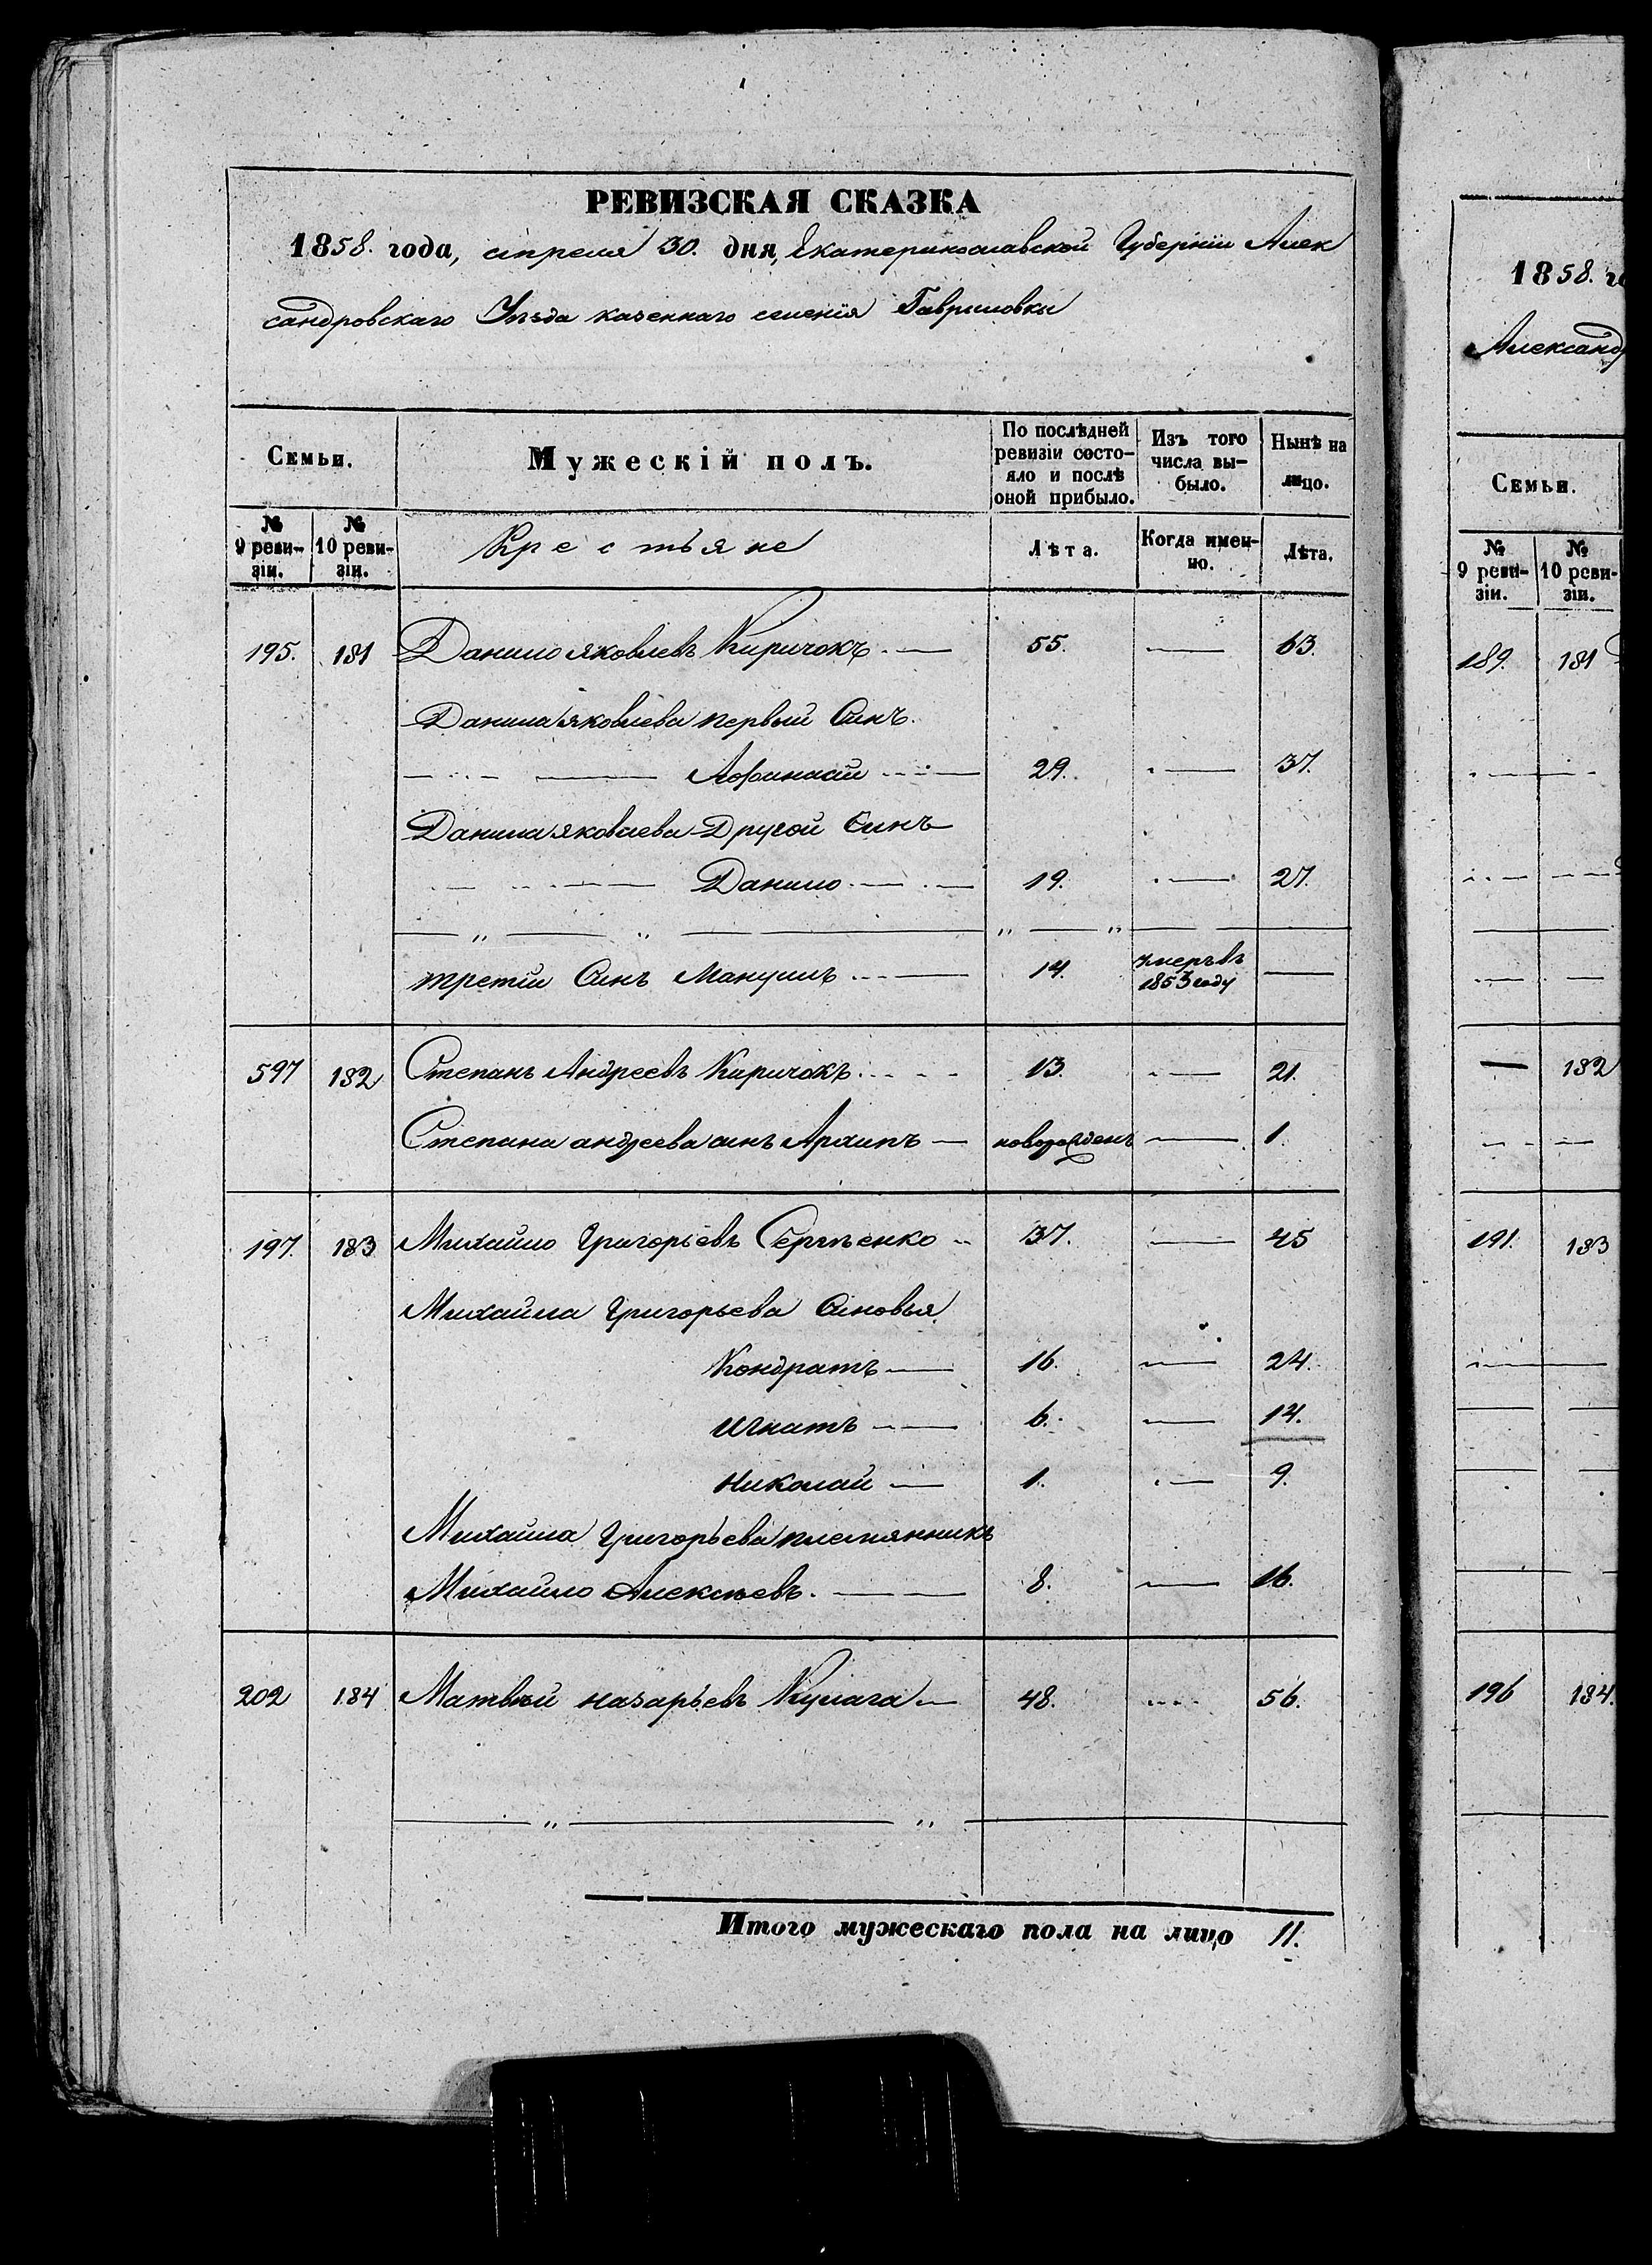 РЕВИЗСКАЯ СКАЗКА
1858. года, апреля 30. дня, Екатеринославской Губерніи Алек
сандровскаго Уѣзда казеннаго селенія Гавриловки
Семьи.
Мужескій полъ.
По послѣдней ревизіи состояло и послѣ оной прибыло.
Изъ того числа выбыло.
Нынѣ на лицо.
№ 9 ревизіи.
№ 10 ревизіи.
Крестьяне
Лѣта.
Когда именно.
Лѣта.
195. 181 Данило яковлевъ Киричокъ. — 55. — 63.
Данила яковлева первый Синъ.
Афанасій — 29. — 37.
Данила яковлева Другой Синъ
Данило — 19. — 27.
третій Синъ Мануилъ — 14. умеръ въ 1853 году —
597 182 Степанъ Андреевъ Киричокъ 13. — 21.
Степана андреева синъ Архипъ — новорожденъ — 1.
197. 183 Михайло Григорьевъ Сергѣенко 37. — 45
Михайла Григорьева Синовья
Кондратъ — 16. — 24.
Игнатъ — 6. — 14.
Николай — 1. — 9.
Михайла Григорьева племянникъ
Михайло Алексѣевъ. — 8. — 16.
202 184 Матвѣй назарьевъ Кулага — 48. — 56.
Итого мужескаго пола на лицо 11.
1858. го
Александ
Семьи.
№ 9 ревизіи.
№ 10 ревизіи.
189. 181
— 182
191. 183
196 184.